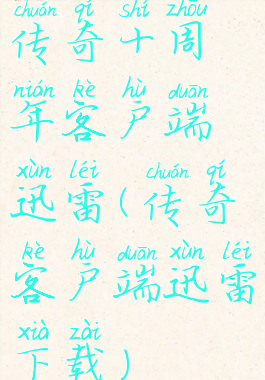 chuán qí shí zhōu
传奇十周
nián kè hù duān
年客户端
xùn léi chuán qí
迅雷(传奇
kè hù duān xùn léi
客户端迅雷
xià zài
下载)